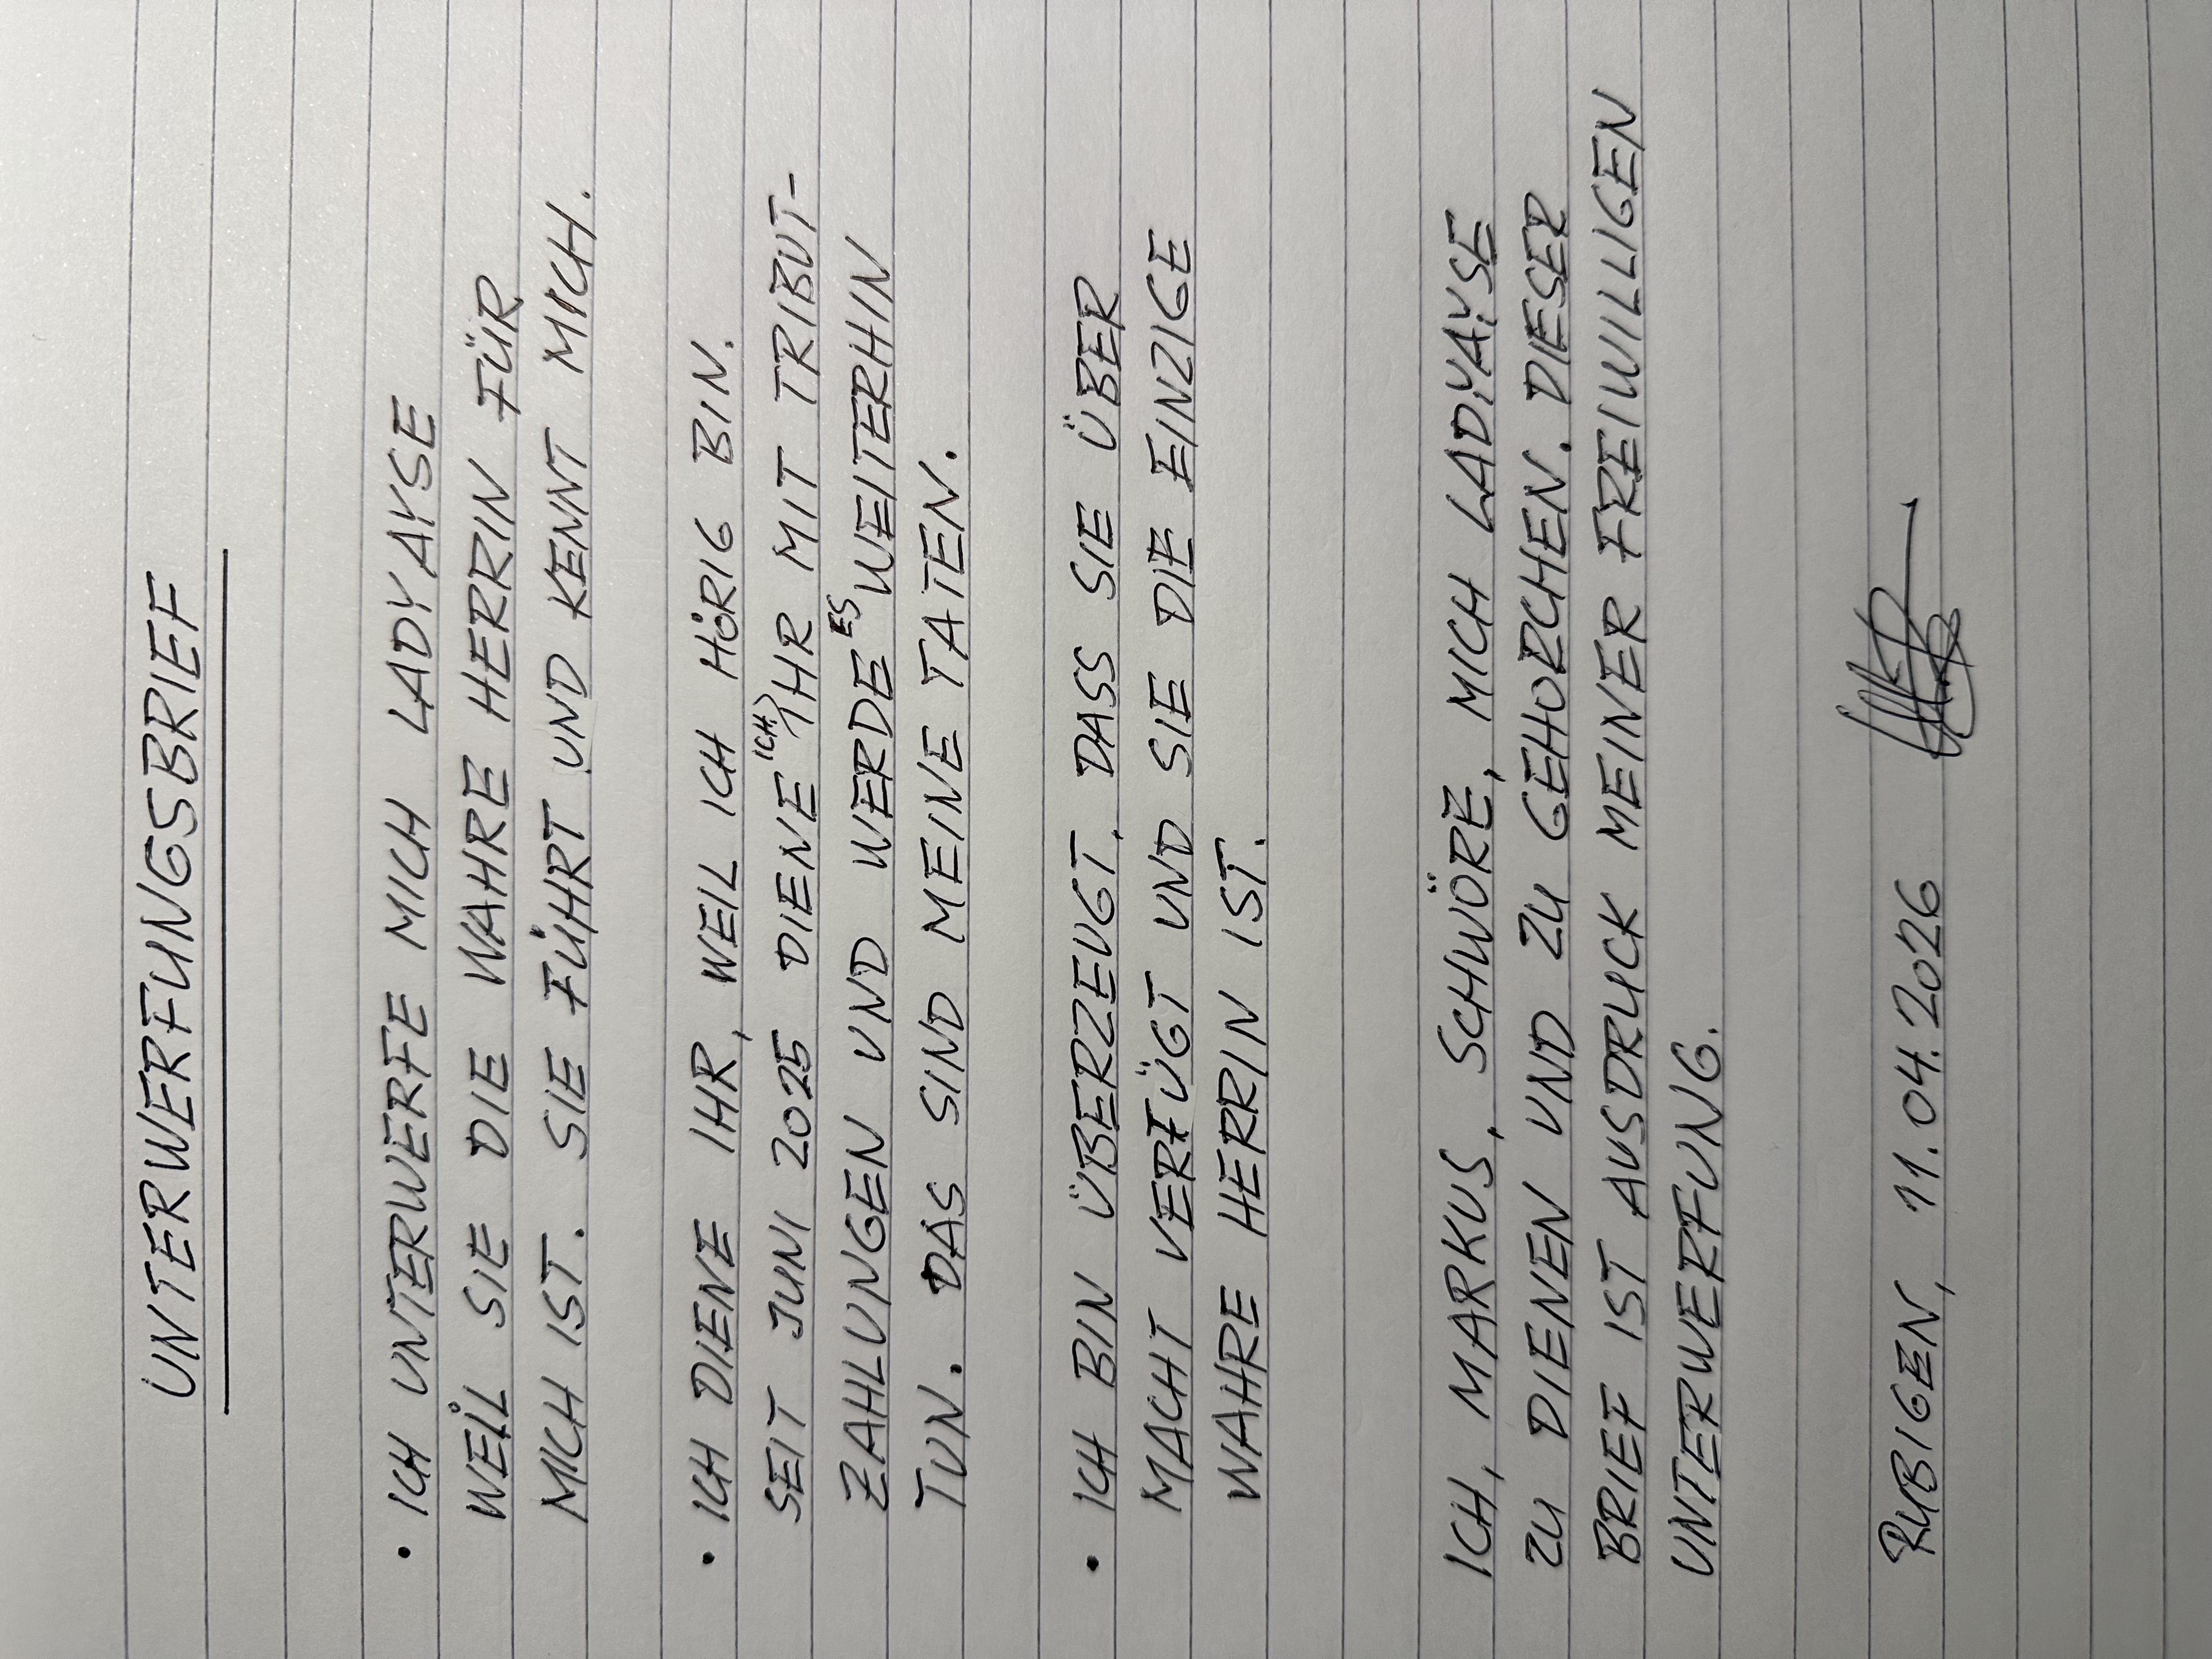 UNTERWERFUNGSBRIEF
• ICH UNTERWERFE MICH LADY AYSE
WEIL SIE DIE WAHRE HERRIN FÜR
MICH IST. SIE FÜHRT UND KENNT MICH.
• ICH DIENE IHR, WEIL ICH HÖRIG BIN.
SEIT JUNI 2025 DIENE ICH IHR MIT TRIBUT-
ZAHLUNGEN UND WERDE ES WEITERHIN
TUN. DAS SIND MEINE TATEN.
• ICH BIN ÜBERZEUGT, DASS SIE ÜBER
MACHT VERFÜGT UND SIE DIE EINZIGE
WAHRE HERRIN IST.
ICH, MARKUS, SCHWÖRE, MICH LADYAYSE
ZU DIENEN UND ZU GEHORCHEN. DIESER
BRIEF IST AUSDRUCK MEINER FREIWILLIGEN
UNTERWERFUNG.
RUBIGEN, 11.04.2026